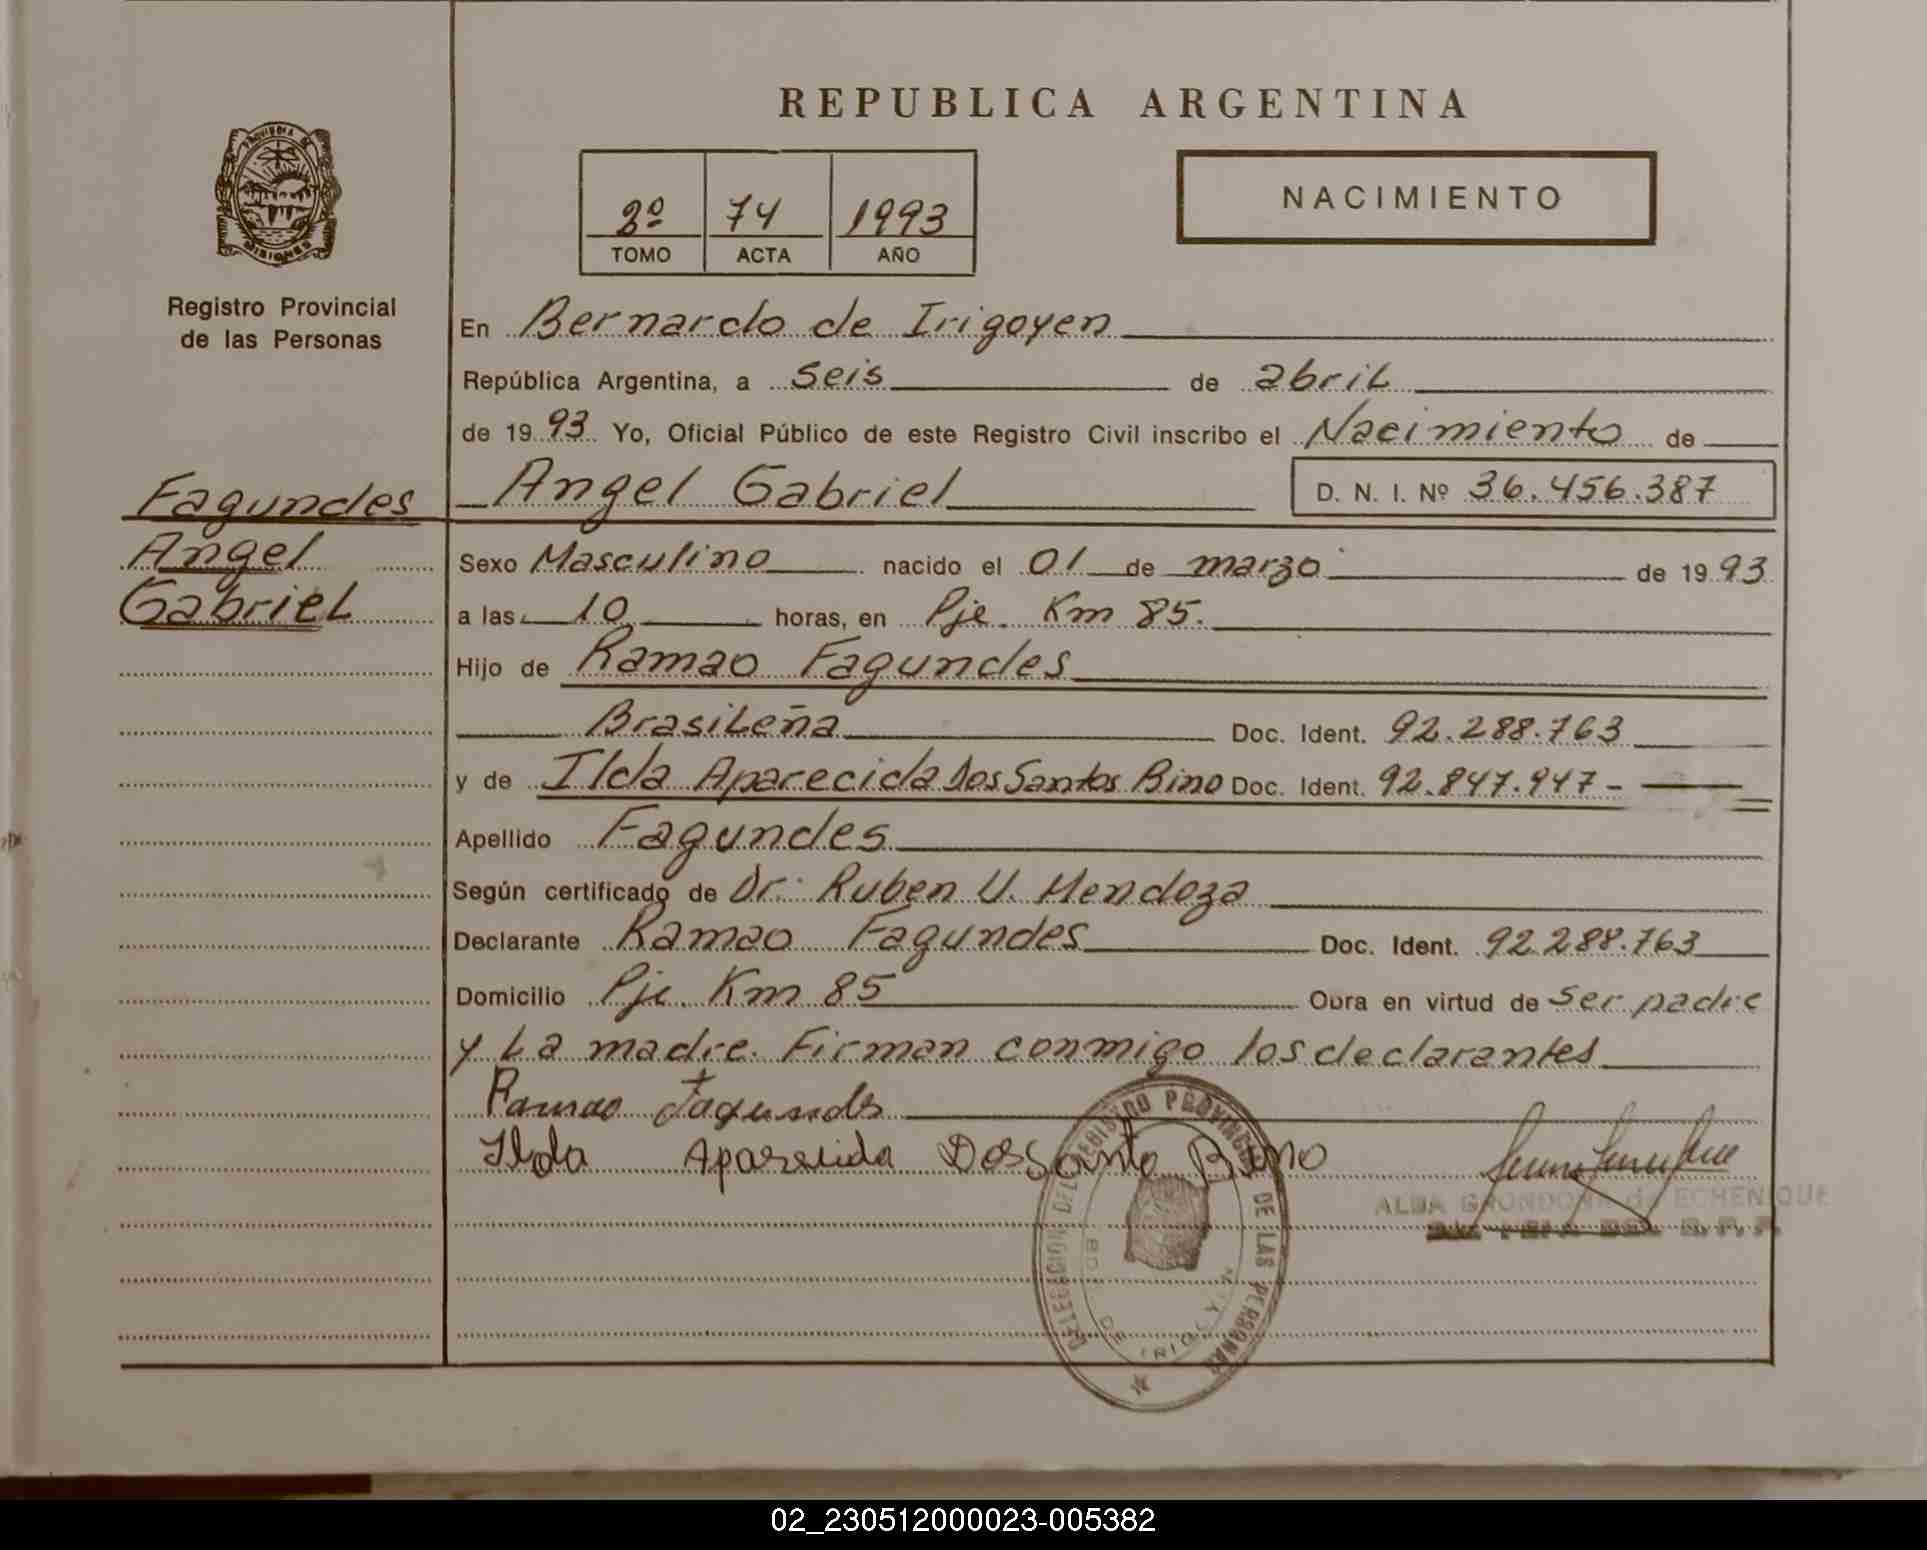 REPUBLICA ARGENTINA
PROVINCIA DE MISIONES
Registro Provincial
de las Personas
2º 74 1993
TOMO ACTA AÑO
NACIMIENTO
En Bernardo de Irigoyen
República Argentina, a seis de abril
de 1993 Yo, Oficial Público de este Registro Civil inscribo el Nacimiento de
Fagundes
Angel
Gabriel
Angel Gabriel D. N. I. Nº 36.456.387
Sexo Masculino nacido el 01 de marzo de 1993
a las 10 horas, en Pje. Km 85.
Hijo de Ramao Fagundes
Brasileña Doc. Ident. 92.288.763
y de Ilda Aparecida Dos Santos Bino Doc. Ident. 92.847.947-
Apellido Fagundes
Según certificado de Dr. Ruben U. Mendoza
Declarante Ramao Fagundes Doc. Ident. 92.288.763
Domicilio Pje. Km 85 Obra en virtud de ser padre
y la madre. Firman conmigo los declarantes
Ramao Fagundes
Ilda Aparecida Dos Santo Bino
DELEGACION DEL REGISTRO PROVINCIAL DE LAS PERSONAS
BDO. DE IRIGOYEN
ALBA GRONDONA de ECHENIQUE
02_230512000023-005382